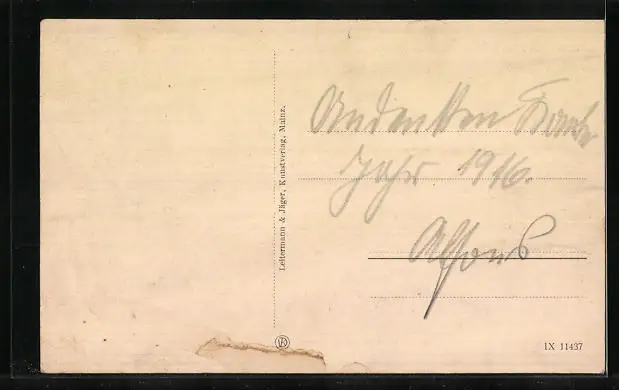 Andenken
Jahr 1916.
Alfons
Leitermann & Jäger, Kunstverlag, Mainz.
IX 11437